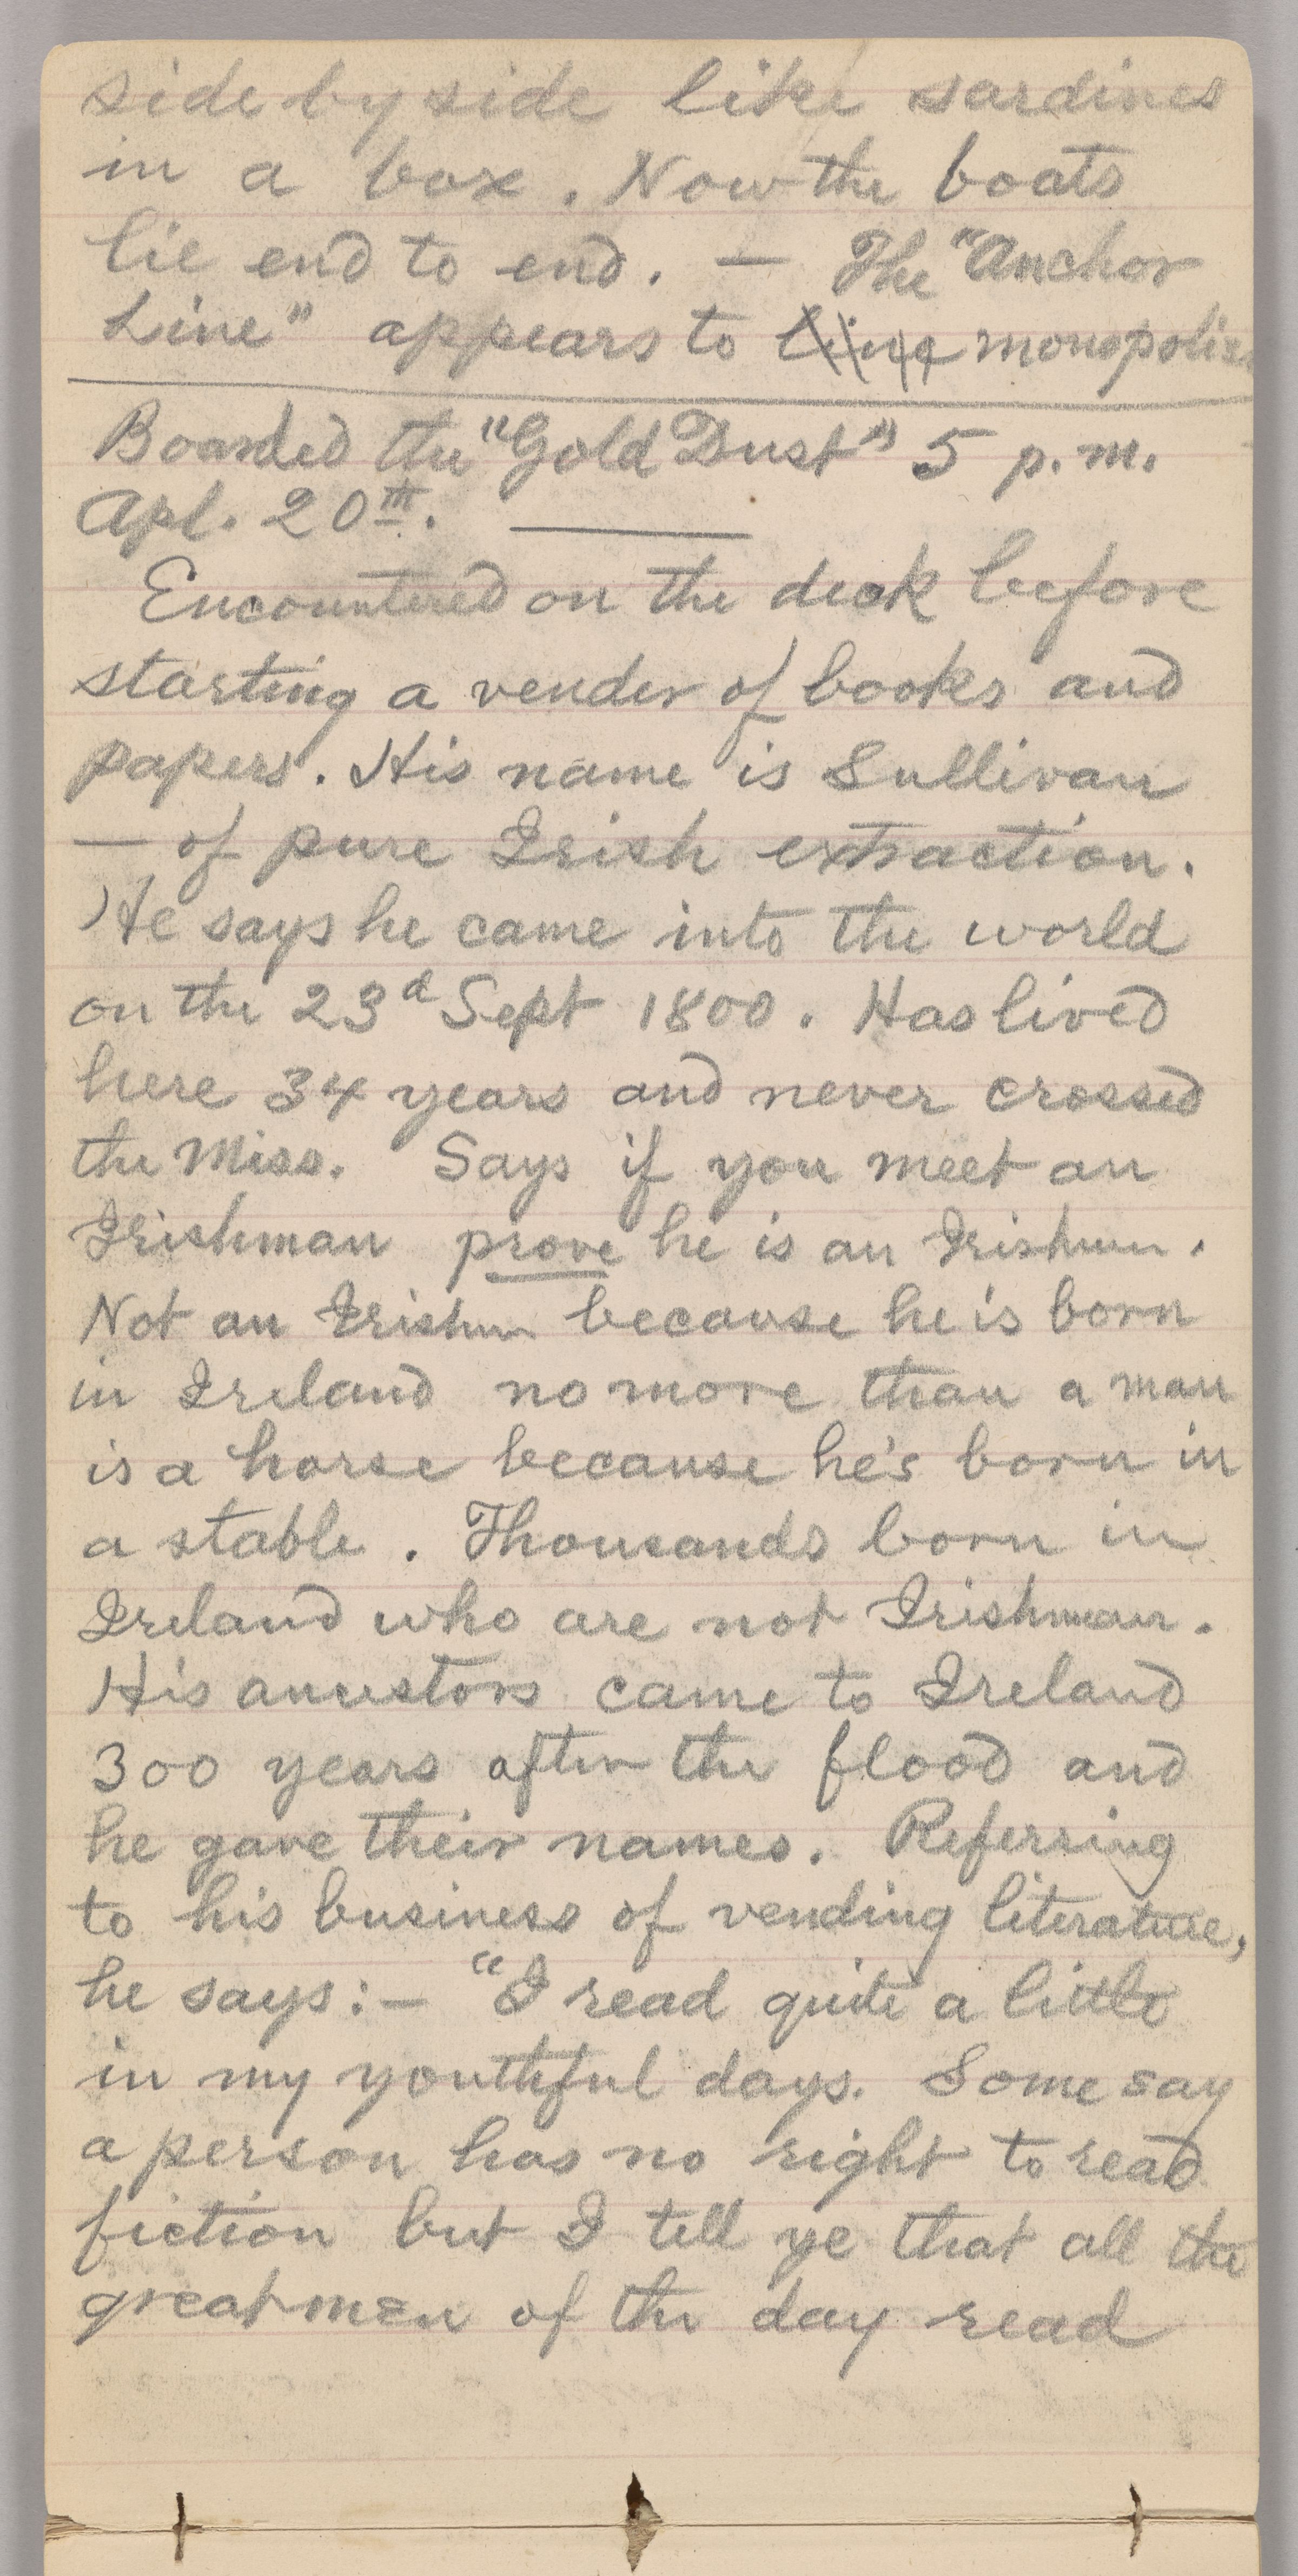 side by side like sardines
in a box. Now the boats
lie end to end. — The "Anchor
Line" appears to line monopolise
Boarded the "Gold Dust" 5 p.m.
Apl. 20th.
Encountered on the deck before
starting a vender of books and
papers. His name is Sullivan
— of pure Irish extraction.
He says he came into the world
on the 23d Sept 1800. Has lived
here 34 years and never crossed
the Miss. Says if you meet an
Irishman prove he is an Irishmn.
Not an Irishmn because he is born
in Ireland no more than a man
is a horse because he's born in
a stable. Thousands born in
Ireland who are not Irishman.
His ancestors came to Ireland
300 years after the flood and
he gave their names. Referring
to his business of vending literature,
he says:— "I read quite a little
in my youthful days. Some say
a person has no right to read
fiction but I tell ye that all the
great men of the day read